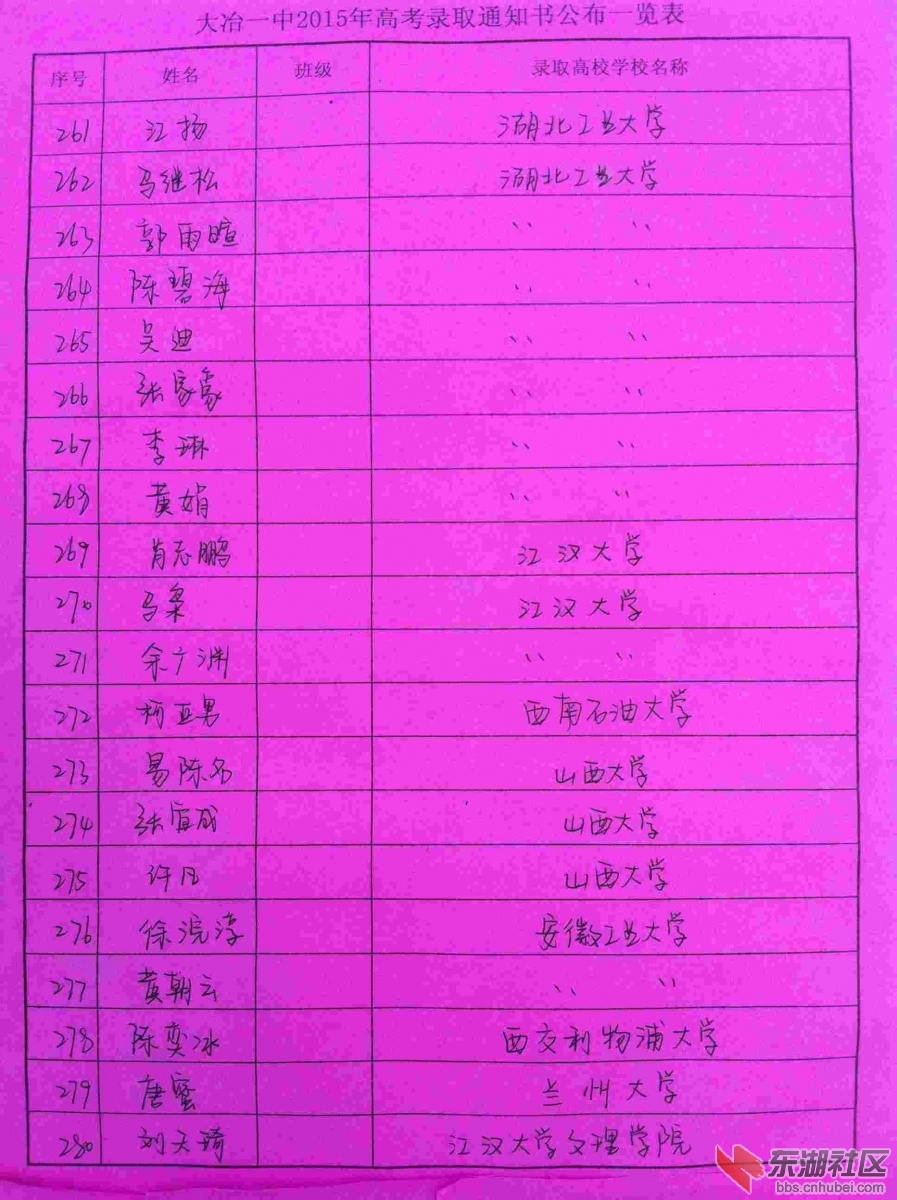 大冶一中2015年高考录取通知书公布一览表
序号 姓名 班级 录取高校学校名称
261 江扬 湖北工业大学
262 马继松 湖北工业大学
263 郭雨暄 〃 〃
264 陈碧海 〃 〃
265 吴迪 〃 〃
266 张家豪 〃 〃
267 李琳 〃 〃
268 黄娟 〃 〃
269 肖志鹏 江汉大学
270 马枭 江汉大学
271 余广渊 〃 〃
272 柯亚男 西南石油大学
273 易陈名 山西大学
274 张宜成 山西大学
275 许凡 山西大学
276 徐浣淳 安徽工业大学
277 黄朝云 〃 〃
278 陈奕冰 西交利物浦大学
279 唐蜜 兰州大学
280 刘天琦 江汉大学文理学院
东湖社区
bbs.cnhubei.com